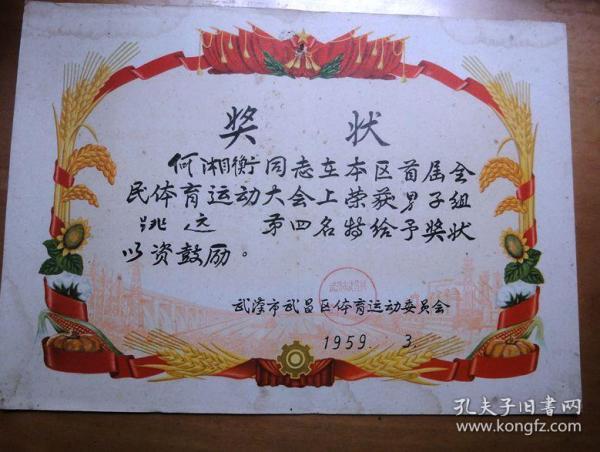 奖状
何湘衡同志在本区首届全
民体育运动大会上荣获男子组
跳远 第四名特给予奖状
以资鼓励。
武汉市武昌区体育运动委员会
1959. 3.
孔夫子旧书网
www.kongfz.com